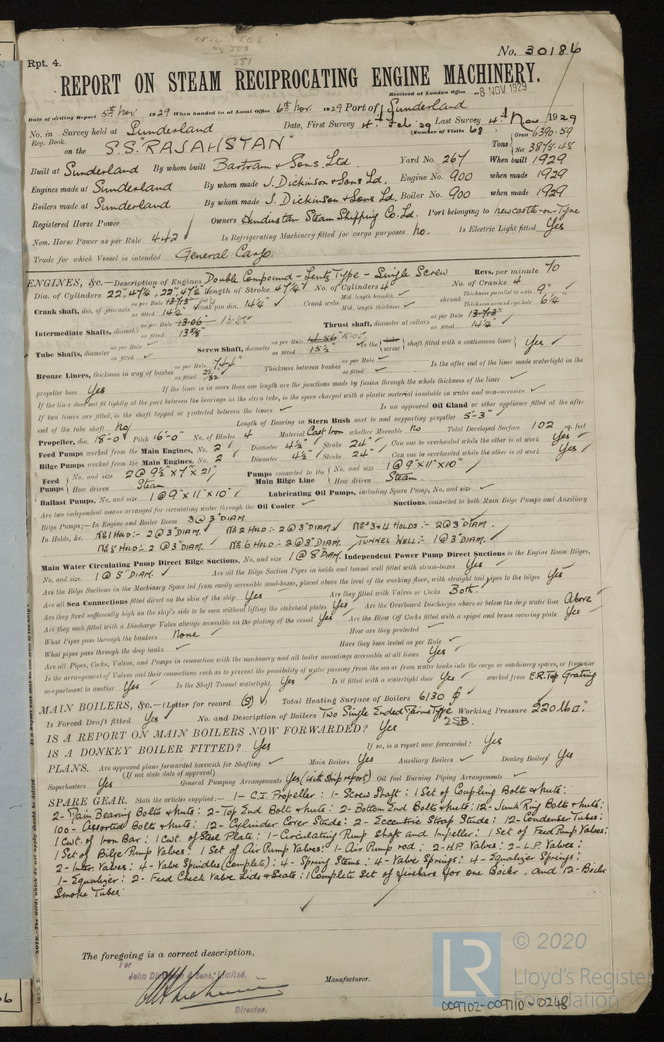 Rpt. 4.
No. 30186
REPORT ON STEAM RECIPROCATING ENGINE MACHINERY.
Received at London Office -8 NOV 1929
Date of writing Report 5th Nov 1929 When handed in at Local Office 6th Nov. 1929 Port of Sunderland
No. in Survey held at Sunderland Date, First Survey 4th Feb 29 Last Survey 4th Nov 1929
Reg. Book. (Number of Visits 68)
on the S.S. "RAJAHSTAN" Tons Gross 6390.59 Net 3875.48
Built at Sunderland By whom built Bartram & Sons Ltd. Yard No. 267 When built 1929
Engines made at Sunderland By whom made J. Dickinson & Sons Ld. Engine No. 900 when made 1929
Boilers made at Sunderland By whom made J. Dickinson & Sons Ld. Boiler No. 900 when made 1929
Registered Horse Power Owners Hindustan Steam Shipping Co. Ld. Port belonging to Newcastle-on-Tyne
Nom. Horse Power as per Rule 442 Is Refrigerating Machinery fitted for cargo purposes No. Is Electric Light fitted Yes
Trade for which Vessel is intended General Cargo.
ENGINES, &c.—Description of Engines Double Compound - Lentz Type - Single Screw Revs. per minute 70
Dia. of Cylinders 22" 47¼", 22", 47¼" Length of Stroke 47¼" No. of Cylinders 4 No. of Cranks 4
Crank shaft, dia. of journals as per Rule 13.73" as fitted 14¼" Crank pin dia. 14¼" Crank webs Mid. length breadth Mid. length thickness shrunk Thickness parallel to axis 9" Thickness around eye-hole 6¼"
Intermediate Shafts, diameter as per Rule 13.06" as fitted 13⅝" Thrust shaft, diameter at collars as per Rule 13.73" as fitted 14¼"
Tube Shafts, diameter as per Rule as fitted Screw Shaft, diameter as per Rule as fitted 15½" Is the screw shaft fitted with a continuous liner Yes
Bronze Liners, thickness in way of bushes as per Rule .744 as fitted Thickness between bushes as per Rule as fitted Is the after end of the liner made watertight in the
propeller boss Yes If the liner is in more than one length are the junctions made by fusion through the whole thickness of the liner
If the liner does not fit tightly at the part between the bearings in the stern tube, is the space charged with a plastic material insoluble in water and non-corrosive
If two liners are fitted, is the shaft lapped or protected between the liners Is an approved Oil Gland or other appliance fitted at the after
end of the tube shaft No Length of Bearing in Stern Bush next to and supporting propeller 5'-3"
Propeller, dia. 18'-0" Pitch 16'-0" No. of Blades 4 Material Cast Iron whether Moveable No Total Developed Surface 102 sq. feet
Feed Pumps worked from the Main Engines, No. 2 Diameter 4½" Stroke 24" Can one be overhauled while the other is at work Yes
Bilge Pumps worked from the Main Engines, No. 2 Diameter 4½" Stroke 24" Can one be overhauled while the other is at work Yes
Feed Pumps No. and size 2 @ 9½" x 7" x 21" How driven Steam Pumps connected to the Main Bilge Line No. and size 1 @ 9" x 11" x 10" How driven Steam.
Ballast Pumps, No. and size 1 @ 9" x 11" x 10" Lubricating Oil Pumps, including Spare Pump, No. and size
Are two independent means arranged for circulating water through the Oil Cooler Suctions, connected to both Main Pumps and Auxiliary
Bilge Pumps;—In Engine and Boiler Room 3 @ 3" DIAM
In Holds, &c. No 1 HOLD:- 2 @ 3" DIAM. No 2 HOLD:- 2 @ 3" DIAM. Nos 3 & 4 HOLDS:- 2 @ 3" DIAM.
No 5 HOLD:- 2 @ 3" DIAM. No 6 HOLD:- 2 @ 3" DIAM. TUNNEL WELL:- 1 @ 3" DIAM.
Main Water Circulating Pump Direct Bilge Suctions, No. and size 1 @ 8" DIAM. Independent Power Pump Direct Suctions to the Engine Room Bilges,
No. and size 1 @ 5" DIAM. Are all the Bilge Suction Pipes in holds and tunnel well fitted with strum-boxes Yes
Are the Bilge Suctions in the Machinery Space led from easily accessible mud-boxes, placed above the level of the working floor, with straight tail pipes to the bilges Yes
Are all Sea Connections fitted direct on the skin of the ship Yes Are they fitted with Valves or Cocks Both.
Are they fixed sufficiently high on the ship's side to be seen without lifting the stokehold plates Yes Are the Overboard Discharges above or below the deep water line Above
Are they each fitted with a Discharge Valve always accessible on the plating of the vessel Yes Are the Blow Off Cocks fitted with a spigot and brass covering plate Yes
What Pipes pass through the bunkers None How are they protected
What pipes pass through the deep tanks Have they been tested as per Rule
Are all Pipes, Cocks, Valves, and Pumps in connection with the machinery and all boiler mountings accessible at all times Yes
Is the arrangement of Valves and their connections such as to prevent the possibility of water passing from the sea or from water tanks into the cargo or machinery spaces, or from one
compartment to another Yes Is the Shaft Tunnel watertight Yes Is it fitted with a watertight door Yes worked from E.R. Top Grating
MAIN BOILERS, &c.—(Letter for record (S)) Total Heating Surface of Boilers 6130
Is Forced Draft fitted Yes No. and Description of Boilers Two Single Ended Marine Type 2 SB. Working Pressure 220 lb
IS A REPORT ON MAIN BOILERS NOW FORWARDED? Yes
IS A DONKEY BOILER FITTED? Yes If so, is a report now forwarded? Yes
PLANS. Are approved plans forwarded herewith for Shafting Main Boilers Yes Auxiliary Boilers Donkey Boilers Yes
(If not state date of approval)
Superheaters Yes General Pumping Arrangements Yes (with Ship report) Oil fuel Burning Piping Arrangements
SPARE GEAR. State the articles supplied:— 1- C.I. Propeller : 1- Screw Shaft : 1 Set of Coupling Bolts & Nuts :
2- Main Bearing Bolts & Nuts : 2- Top End Bolts & Nuts : 2- Bottom End Bolts & Nuts : 12- Junk Ring Bolts & Nuts :
100- Assorted Bolts & Nuts : 12- Cylinder Cover Studs : 2- Eccentric Strap Studs : 12- Condenser Tubes :
1 Cwt. of Iron Bar : 1 Cwt. of Steel Plate : 1- Circulating Pump Shaft and Impeller : 1 Set of Feed Pump Valves :
1 Set of Bilge Pump Valves : 1 Set of Air Pump Valves : 1- Air Pump rod : 2- H.P. Valves : 2- L.P. Valves :
2- Inter. Valves : 4- Valve Spindles (complete) : 4- Spring Stems : 4- Valve Springs : 4- Equalizer Springs :
1- Equalizer : 2- Feed Check Valve Lids & Seats : 1 Complete Set of firebars for one Boiler. and 12- Boiler
Smoke Tubes.
The foregoing is a correct description,
For
John Dickinson & Sons, Limited,
Manufacturer.
Director.
LR © 2020
Lloyd's Register
Foundation
009702-009710-0248